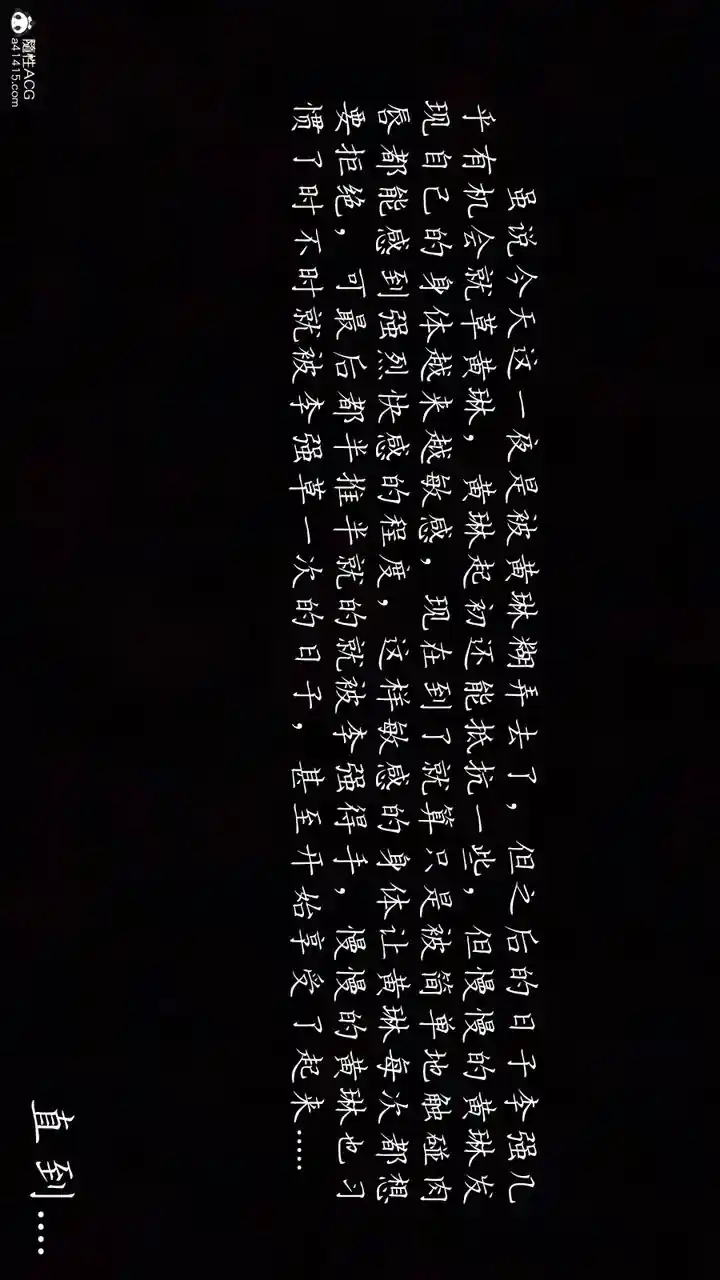 虽说今天这一夜是被黄琳糊弄去了，但之后的日子李强几
乎有机会就草黄琳，黄琳起初还能抵抗一些，但慢慢的黄琳发
现自己的身体越来越敏感，现在到了就算只是被简单地触碰肉
唇都能感到强烈快感的程度，这样敏感的身体让黄琳每次都想
要拒绝，可最后都半推半就的就被李强得手，慢慢的黄琳也习
惯了时不时就被李强草一次的日子，甚至开始享受了起来……
直到....
隨性ACG
a41415.com